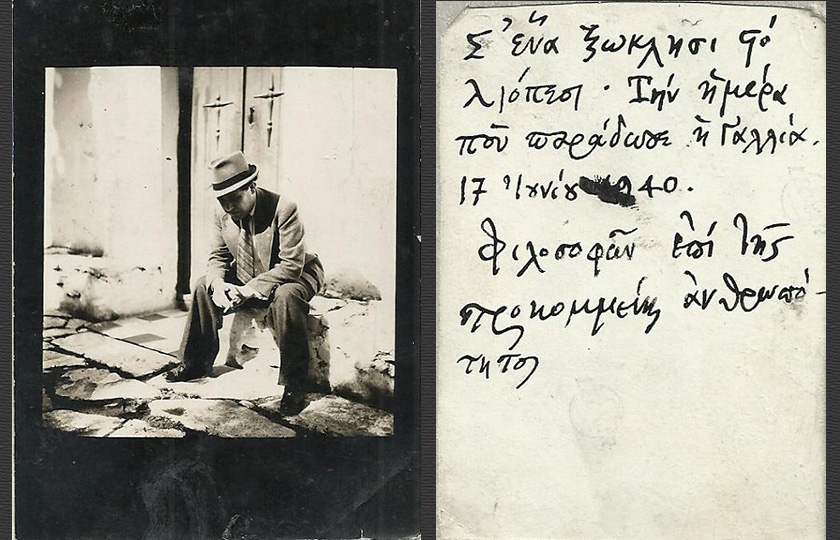 Σ' ἕνα ξωκλησι στό
Λιόπεσι · Τήν ἡμέρα
ποῦ παράδωσε ἡ Γαλλία.
17 Ἰουνίου 1940.
Φιλοσοφῶν ἐπί τῆς
προκομμένης ἀνθρωπό-
τητος